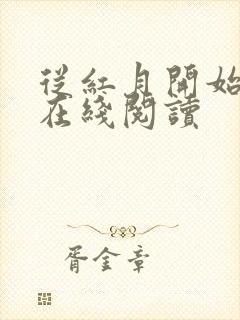 從紅月開始
在綫閱讀
胥金章